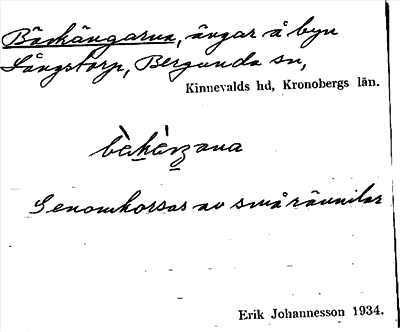 Bäckängarna, ängar å byn
Långstorp, Bergunda sn,
Kinnevalds hd, Kronobergs län.
bèkèŋana
Genomkorsas av små rännilar
Erik Johannesson 1934.